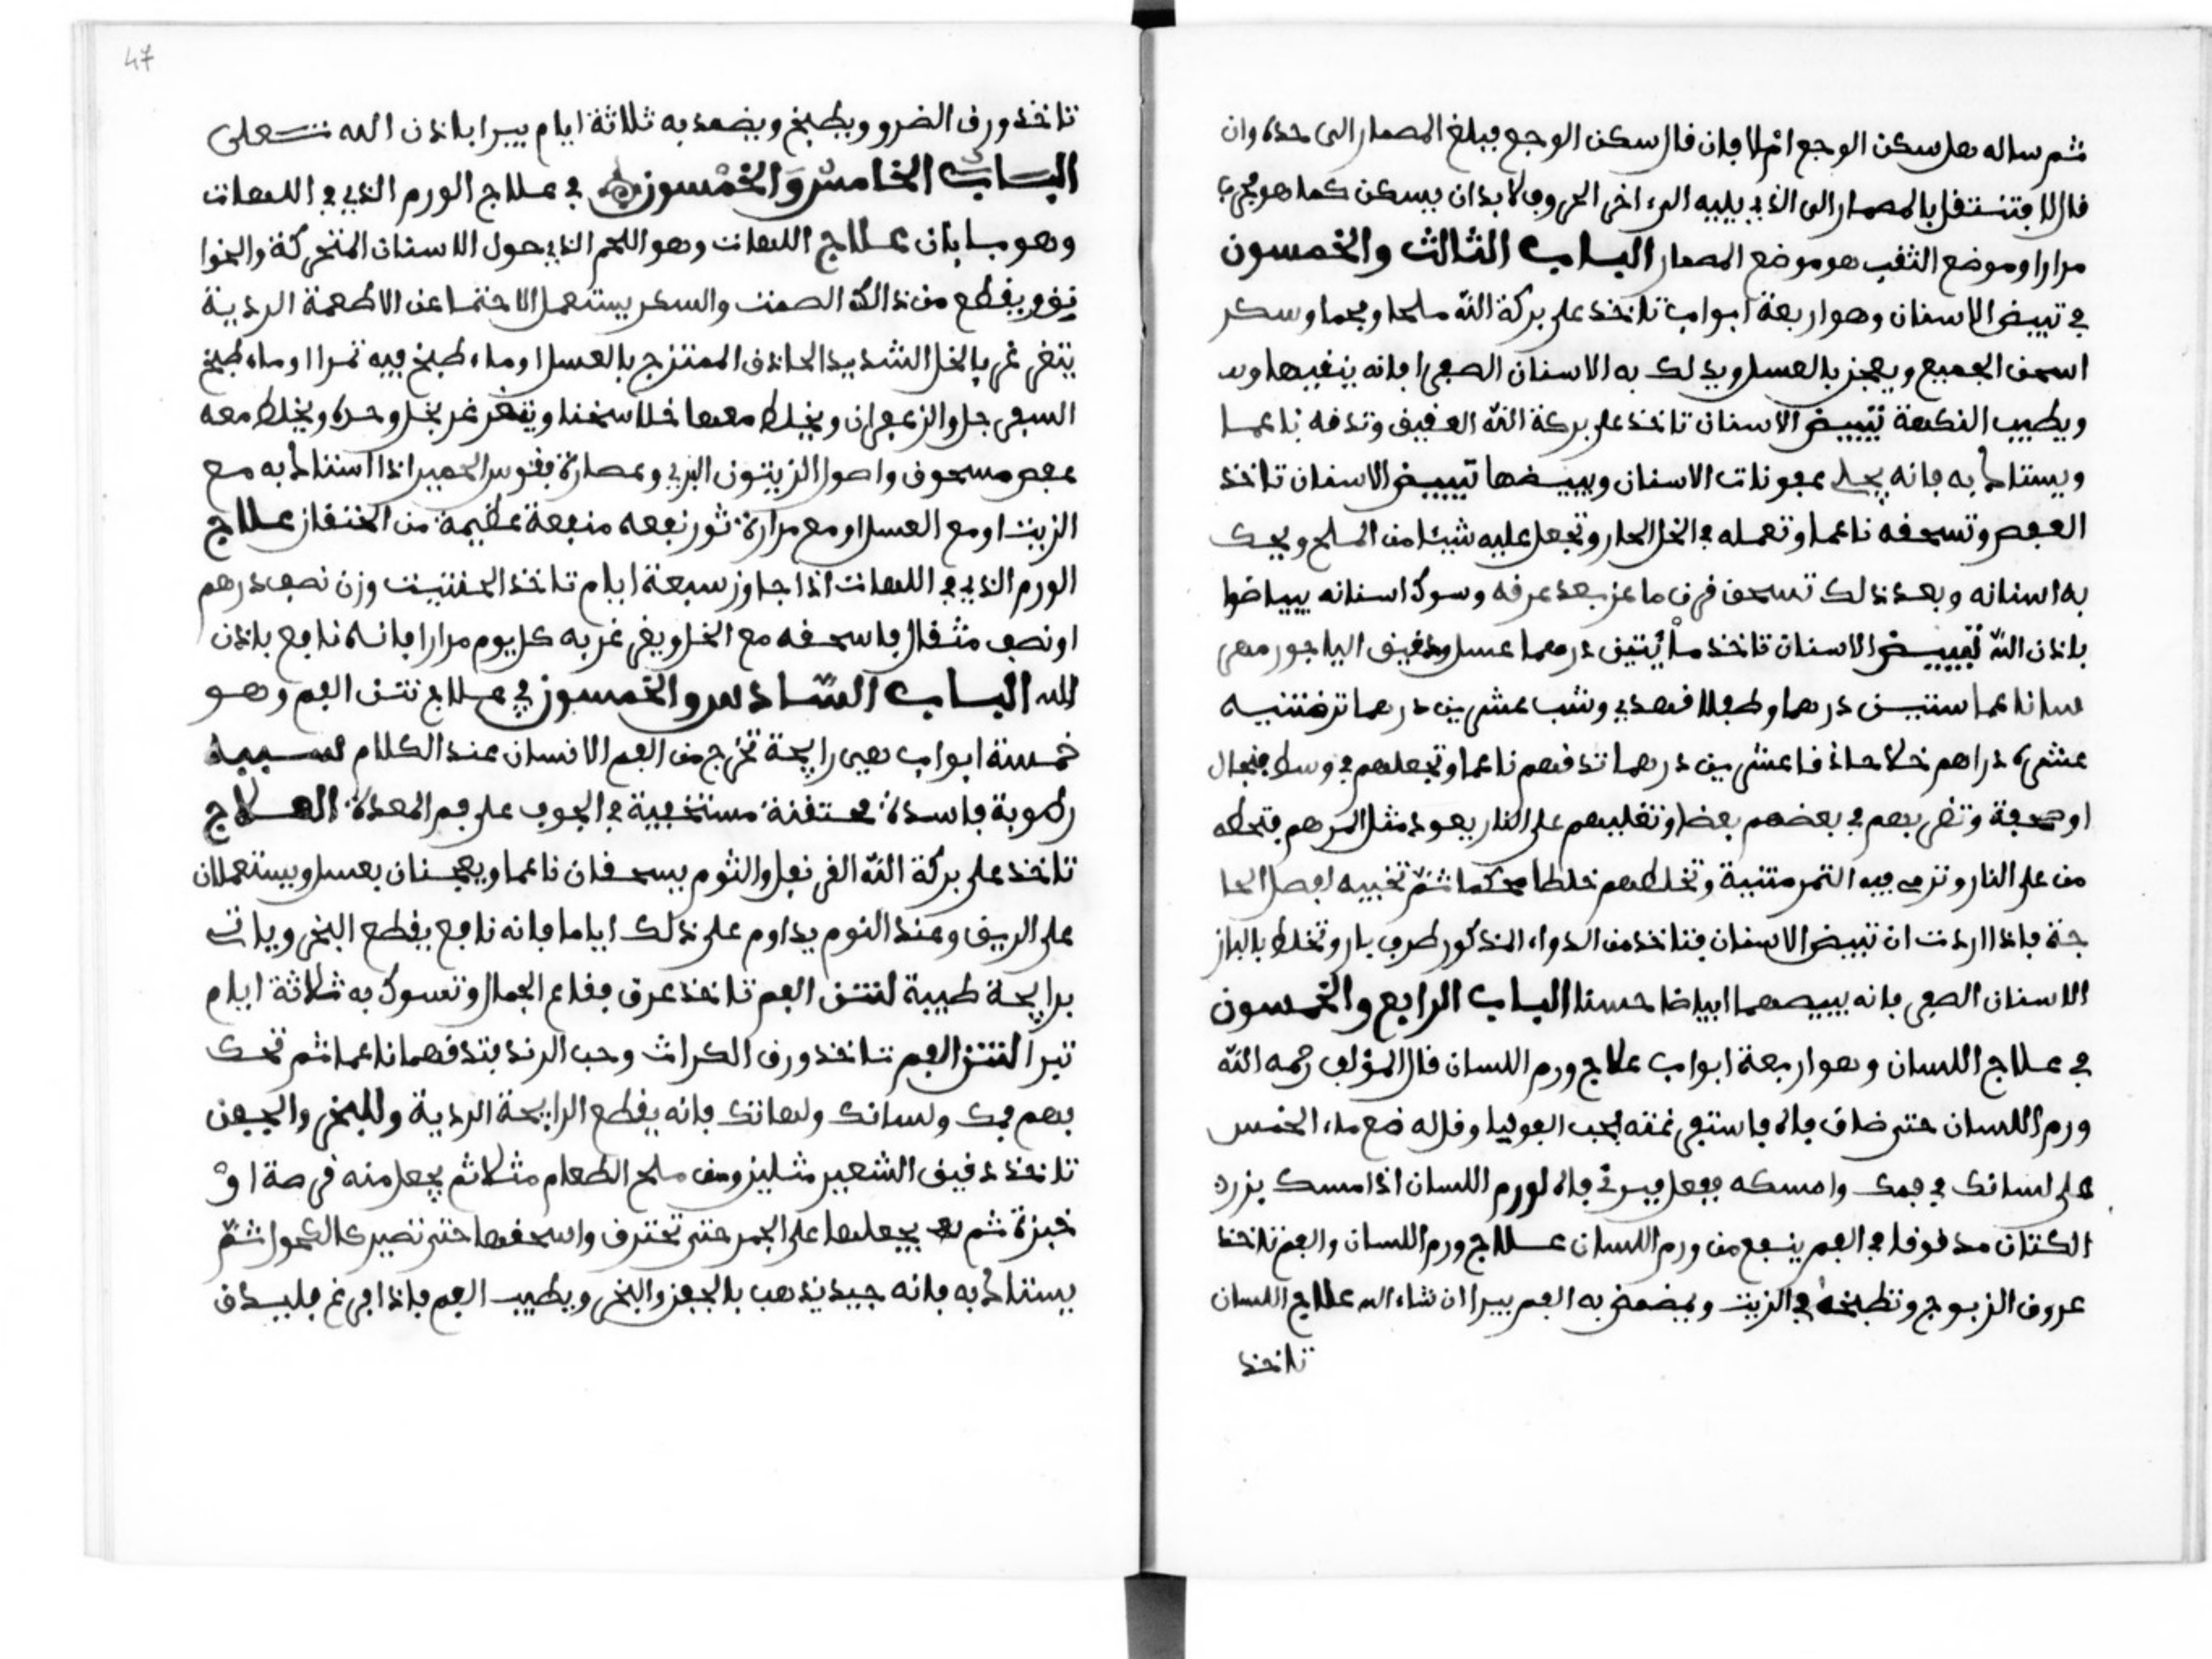 ثم ساله هل سكن الوجع ام لا فان قال سكن الوجع فيبلغ المصمار الى حده وان
قال لا فتنتقل بالمصمار الى الذي يليه الى اخر الحروف لا بد ان يسكن كما هو مجرب
مرارا وموضع الثقب هو موضع المصمار الباب الثالث والخمسون
في تبييض الاسنان وهو اربعة ابواب تاخذ على بركة الله ملحا وفحما وسكر
اسحق الجميع ويعجن بالعسل ويدلك به الاسنان الصفرا فانه ينقيها
ويطيب النكهة تبييض الاسنان تاخذ على بركة الله العقيق وتدقه ناعما
ويستاك به فانه يجلي عفونات الاسنان ويبيضها تبييض الاسنان تاخذ
العفص وتسحقه ناعما وتعمله في الخل الحار وتجعل عليه شيئا من الملح ويحك
به اسنانه وبعد ذلك تسحق قرن ماعز بعد حرقه وسوك اسنانه يبياضوا
باذن الله تبييض الاسنان تاخذ مائتين درهما عسل ودقيق الياجور
ناعما ستين درهما وطفلا فهدي وشب عشرين درهما
عشرة دراهم خلا حاذقا عشرين درهما تدقهم ناعما وتجعلهم في وسط فنجال
او صحفة وتضربهم في بعضهم بعضا وتقلبهم على النار بعود مثل المرهم فتحطه
من على النار وترمي فيه التمر متنية وتخلطهم خلطا محكما ثم تخبيه لفصل الحا
جة فاذا اردت ان تبيض الاسنان فتاخذ من الدواء المذكور طرف بار وتخلط بالباز
الاسنان الصفر فانه يبيضهما ابياضا حسنا الباب الرابع والخمسون
في علاج اللسان وهو اربعة ابواب علاج ورم اللسان قال المؤلف رحمه الله
ورم اللسان حتى ضاق فاه فاستفرغته بحب القوقيا وقال له ضع ماء الخس
على لسانك في فمك وامسكه ففعل فبرئ فاه لورم اللسان اذا مسك بزرة
الكتان مدقوقا في الفم ينفع من ورم اللسان علاج ورم اللسان والفم تاخذ
عروق الزبوج وتطبخه في الزيت ويمضمض به الفم يبرا ان شاء الله علاج اللسان
تاخذ
47
تاخذ ورق الضرو ويطبخ ويضمد به ثلاثة ايام يبرا باذن الله تعلى
الباب الخامس والخمسون في علاج الورم الذي في اللهات
وهو بابان علاج اللهات وهو اللحم الذي حول الاسنان المتحركة والخوا
نق ويقطع من ذالك الصمت والسكر يستعمل الاحتما عن الاطعمة الردية
يتغرغر بالخل الشديد الحاذق الممتزج بالعسل او ماء طبخ فيه تمرا او ماء طبخ
السفرجل والزعفران ويخلط معها خلا سخنا ويتغرغر بخل وحده ويخلط معه
عفص مسحوق واصول الزيتون البري وعصارة فقوس الحمير اذا استاك به مع
الزيت او مع العسل او مع مرارة ثور نفعه منفعة عظيمة من الختقاز علاج
الورم الذي في اللهات اذا جاوز سبعة ايام تاخذ الحنتيت وزن نصف درهم
او نصف مثقال فاسحقه مع الخل ويغرغر به كل يوم مرارا فانه نافع باذن
الله الباب السادس والخمسون في علاج نتن الفم وهو
خمسة ابواب هي رايحة تخرج من الفم الانسان عند الكلام سببه
رطوبة فاسدة معتفنة مستخبية في الجوف على فم المعدة العلاج
تاخذ على بركة الله القرنفل والثوم يسحقان ناعما ويعجنان بعسل ويستعملان
على الريق وعند النوم يداوم على ذلك اياما فانه نافع يقطع البخر وياتي
برايحة طيبة لنتن الفم تاخذ عرق فقاع الجمال وتسوك به ثلاثة ايام
تبرا لنتن الفم تاخذ ورق الكراث وحب الرند فتدقهما ناعما ثم تحك
بهم فمك ولسانك ولهاتك فانه يقطع الرايحة الردية وللبخر والجفن
تاخذ دقيق الشعير مثليز ومن ملح الطعام مثلا ثم يجعل منه قرصة او
خبزة ثم يجعلها على الجمر حتى تحترق واسحقها حتى تصير كالكحول ثم
يستاك به فانه جيد يذهب بالجفن والبخر ويطيب الفم فاذا فرغ فليدق